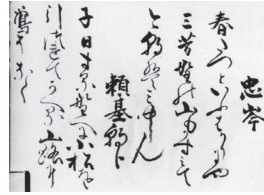 忠岑
春たつといふはかりにや
三芳野の山もかすみて
今朝はみゆらん
頼基朝臣
子日する野へに小松を
引つれてかへる山路に
鶯そなく